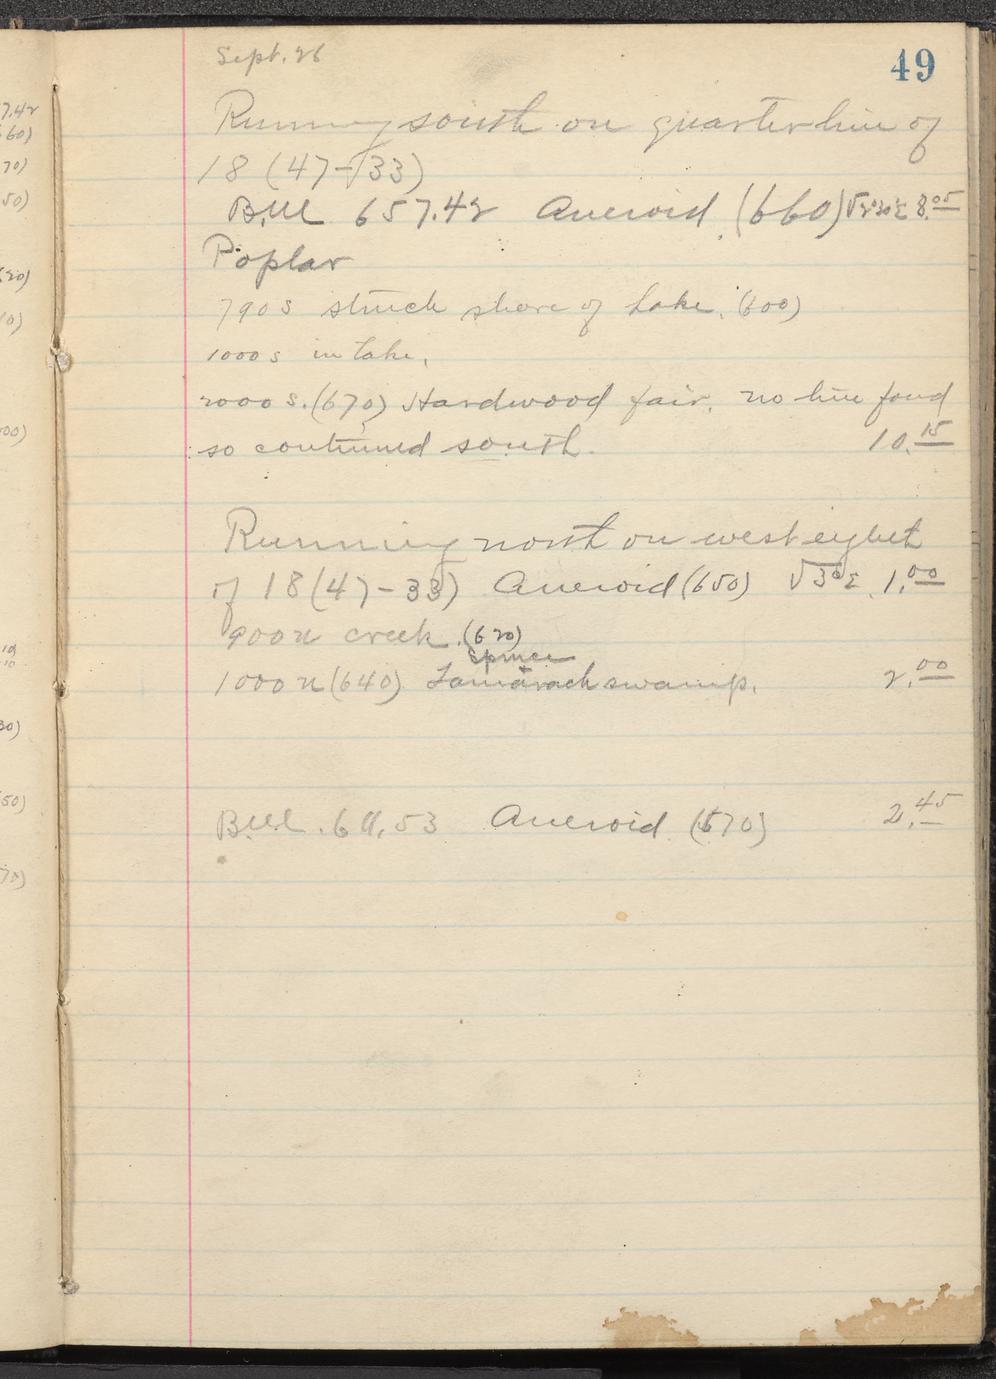 Sept. 26
49
Running south on quarter line of
18 (47-33)
B.M. 657.42 Aneroid (660) √2°30'E 8.05
Poplar
790 S struck shore of Lake. (600)
1000 S in Lake.
2000 S. (670) Hardwood fair. no line found
so continued south. 10.15
Running north on west eighth
of 18 (47-33) Aneroid (650) √3°E 1.00
900 N creek. (620)
Spruce
1000 N (640) Tamarack swamp. 2.00
B.M. 611.53 Aneroid (570) 2.45
7.42
660)
70)
50)
0)
50)